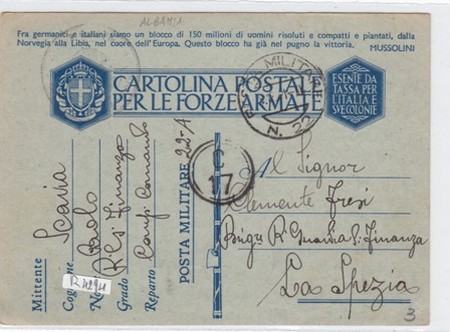 ALBANIA
Fra germanici e italiani siamo un blocco di 150 milioni di uomini risoluti e compatti e piantati, dalla
Norvegia alla Libia, nel cuore dell'Europa. Questo blocco ha già nel pugno la vittoria. MUSSOLINI
CARTOLINA POSTALE
PER LE FORZE ARMATE
ESENTE DA
TASSA PER
L'ITALIA E
SVE COLONIE
POSTA MILITARE
N. 22
C
17
Mittente
Cognome Scavia
Nome Paolo
Grado Finanza
Reparto Comp. Comando
POSTA MILITARE 22-A
Al Signor
Clemente Fresi
Brig. R. Guardia Finanza
La Spezia
3